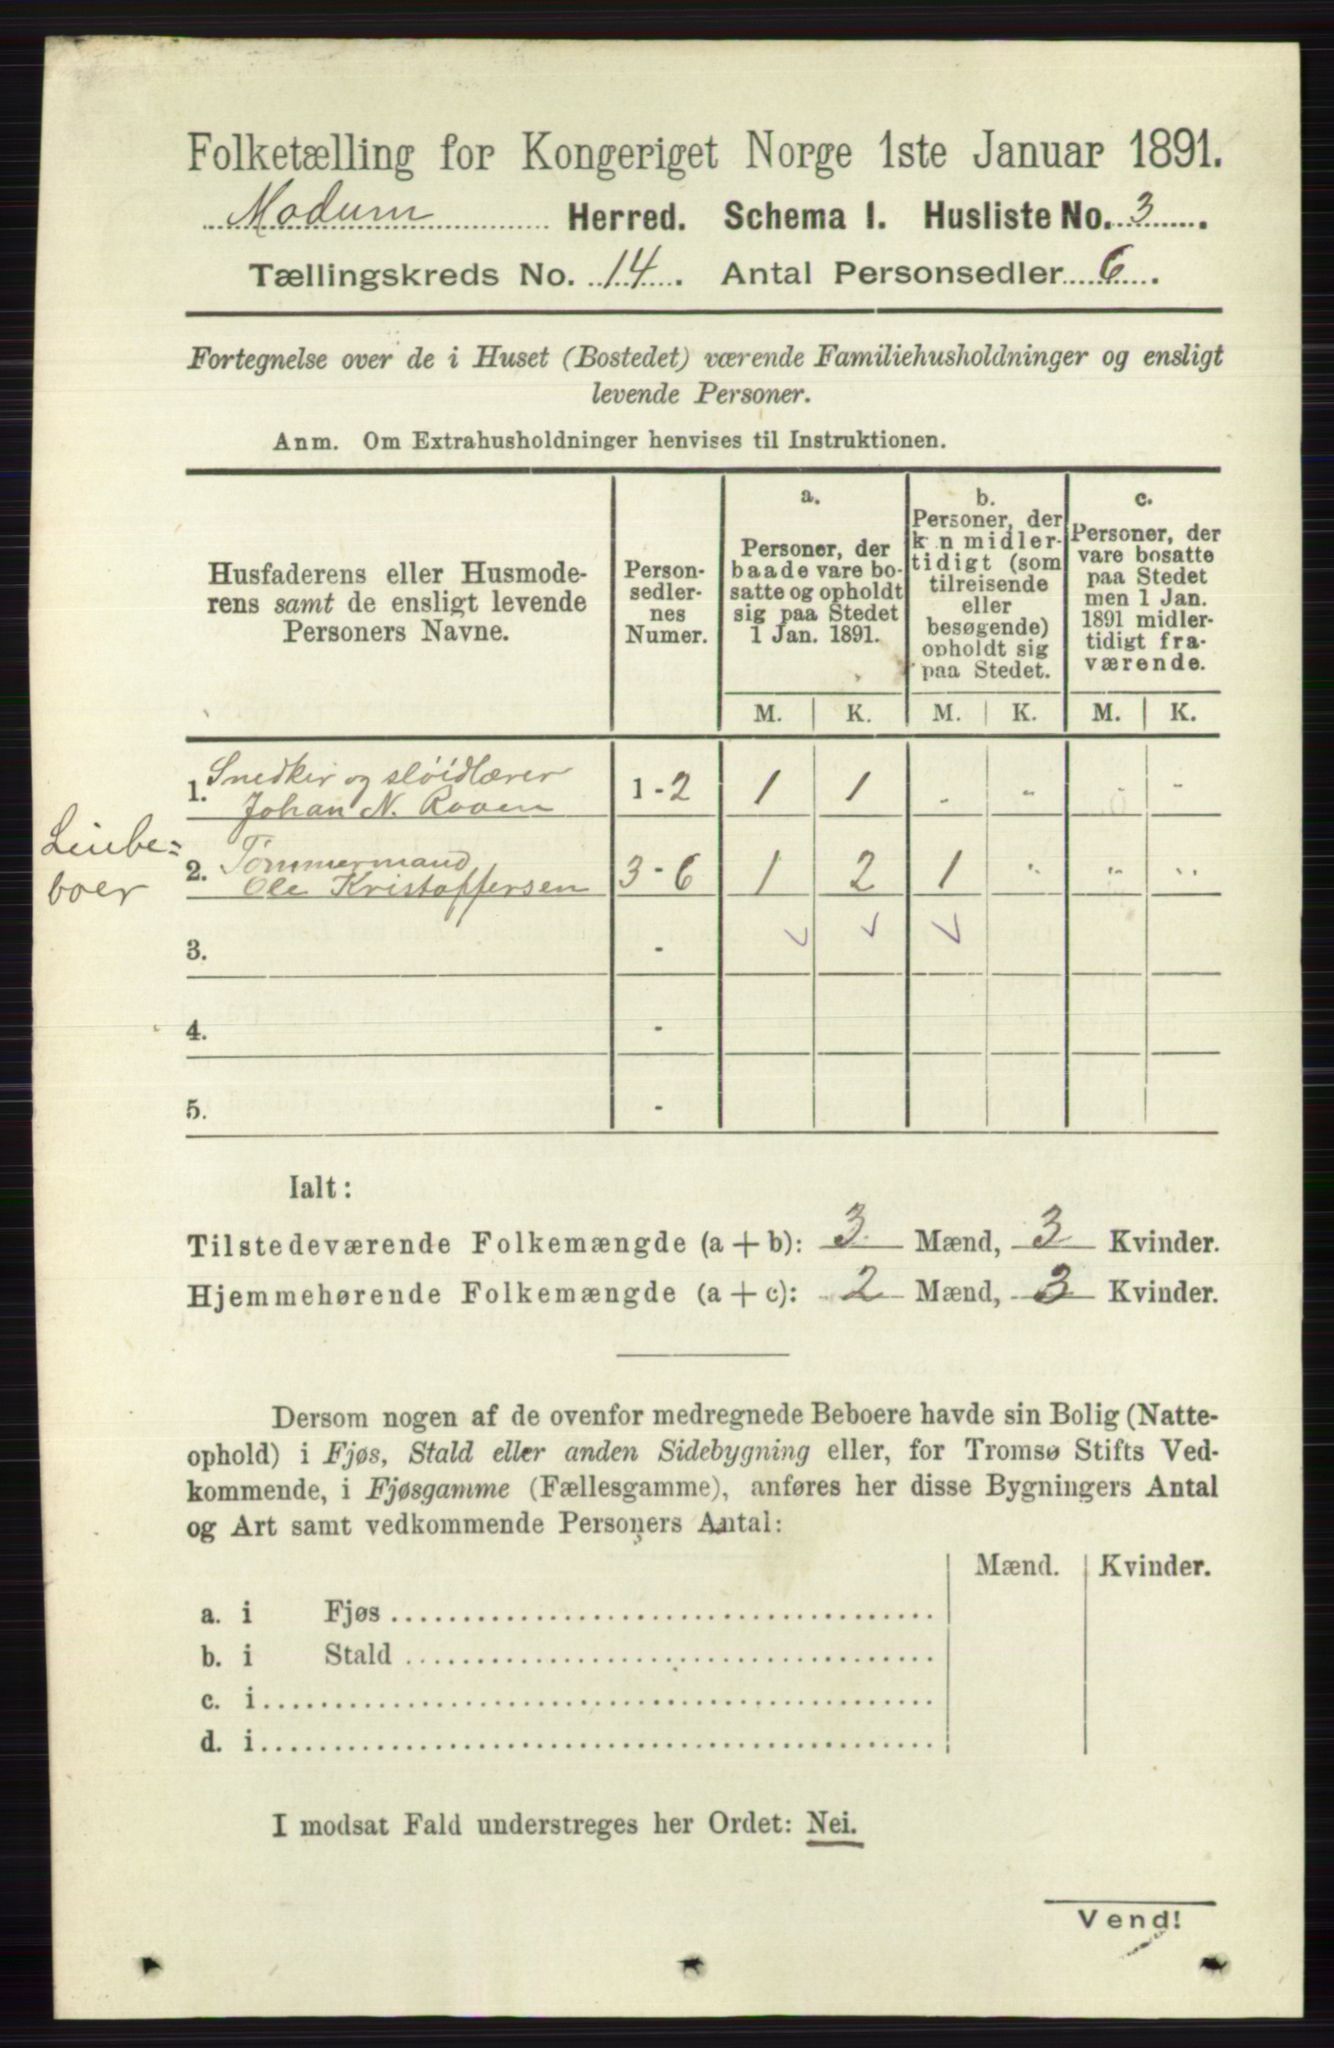 Folketælling for Kongeriget Norge 1ste Januar 1891.
Modum Herred. Schema I. Husliste No. 3.
Tællingskreds No. 14. Antal Personsedler 6.
Fortegnelse over de i Huset (Bostedet) værende Familiehusholdninger og ensligt
levende Personer.
Anm. Om Extrahusholdninger henvises til Instruktionen.
Husfaderens eller Husmode-
rens samt de ensligt levende
Personers Navne.
Person-
sedler-
nes
Numer.
a.
Personer, der
baade vare bo-
satte og opholdt
sig paa Stedet
1 Jan. 1891.
b.
Personer, der
k n midler-
tidigt (som
tilreisende
eller
besøgende)
opholdt sig
paa Stedet.
c.
Personer, der
vare bosatte
paa Stedet
men 1 Jan.
1891 midler-
tidigt fra-
værende.
M. K. M. K. M. K.
Snedker og sløidlærer
1. Johan N. Raaen 1-2 1 1 - - - -
Leiebe=
boer
Tømmermand
2. Ole Kristoffersen 3-6 1 2 1 - - -
3. -
4. -
5. -
Ialt:
Tilstedeværende Folkemængde (a + b): 3 Mænd, 3 Kvinder.
Hjemmehørende Folkemængde (a + c): 2 Mænd, 3 Kvinder.
Dersom nogen af de ovenfor medregnede Beboere havde sin Bolig (Natte-
ophold) i Fjøs, Stald eller anden Sidebygning eller, for Tromsø Stifts Ved-
kommende, i Fjøsgamme (Fællesgamme), anføres her disse Bygningers Antal
og Art samt vedkommende Personers Antal:
Mænd. Kvinder.
a. i Fjøs
b. i Stald
c. i
d. i
I modsat Fald understreges her Ordet: Nei.
Vend!